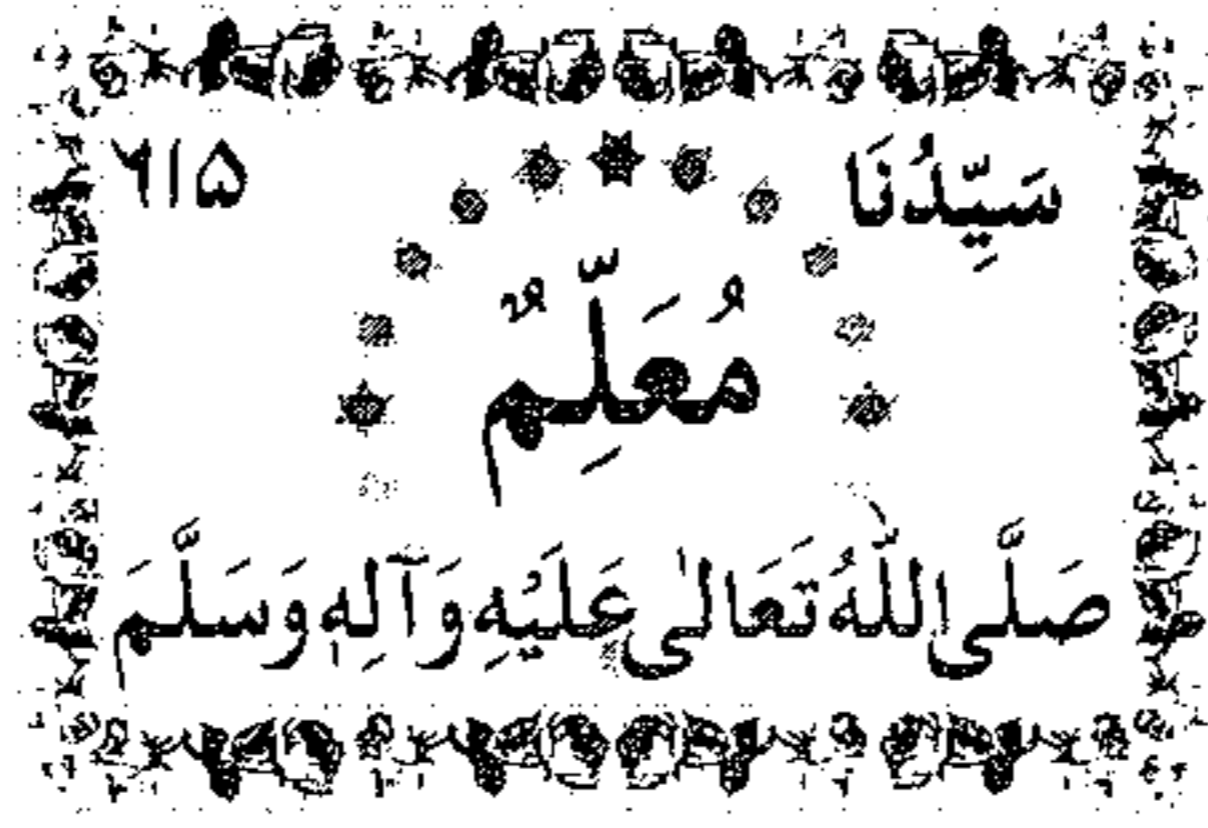 سَيِّدُنَا ۶۱۵
مُعَلِّمٌ
صَلَّى اللّٰهُ تَعَالٰى عَلَيْهِ وَآلِهٖ وَسَلَّمَ